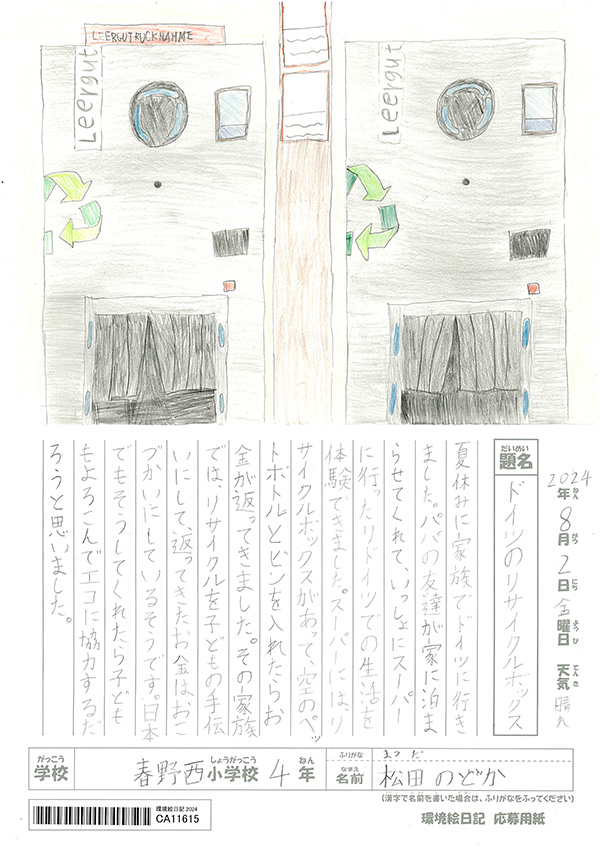 LEERGUTRUCKNAHME
Leergut
Leergut
2024年8月2日金曜日 天気 晴れ
ねん がつ にち ようび てんき
だいめい
題名
ドイツのリサイクルボックス
夏休みに家族でドイツに行き
ました。パパの友達が家に泊ま
らせてくれて、いっしょにスーパー
に行ったりドイツでの生活を
体験できました。スーパーには、リ
サイクルボックスがあって、空のペッ
トボトルとビンを入れたらお
金が返ってきました。その家族
では、リサイクルを子どもの手伝
いにして、返ってきたお金はおこ
づかいにしているそうです。日本
でもそうしてくれたら子ども
もよろこんでエコに協力するだ
ろうと思いました。
がっこう
学校
春野西小学校 4年
しょうがっこう ねん
ふりがな まつだ
なまえ
名前 松田 のどか
(漢字で名前を書いた場合は、ふりがなをふってください)
環境絵日記 2024
CA11615
環境絵日記 応募用紙